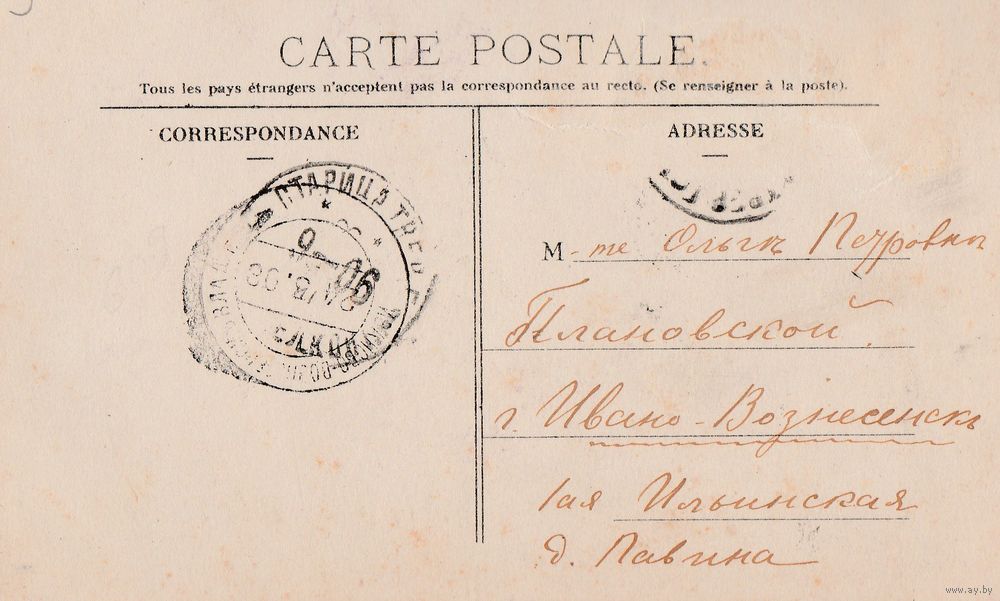 CARTE POSTALE.
Tous les pays étrangers n'acceptent pas la correspondance au recto. (Se renseigner à la poste).
CORRESPONDANCE
СТАРИЦА ТВЕР
06
ADRESSE
M-me Ольгѣ Петровнѣ
Плановской.
г. Ивано-Вознесенскъ
1ая Ильинская
д. Павина
www.ay.by